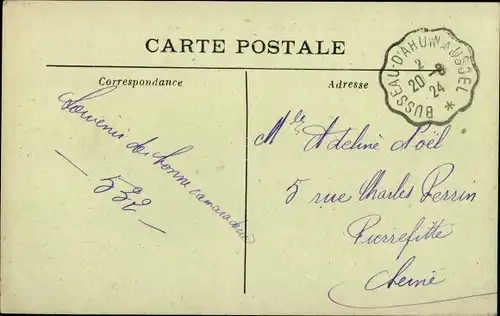 CARTE POSTALE
Correspondance
Adresse
BUSSEAU-D'AHUN A USSEL *
2
20 -8
24
Souvenir de bonne camaraderie
532
Mlle Adeline Noël
5 rue Charles Perrin
Pierrefitte
Seine